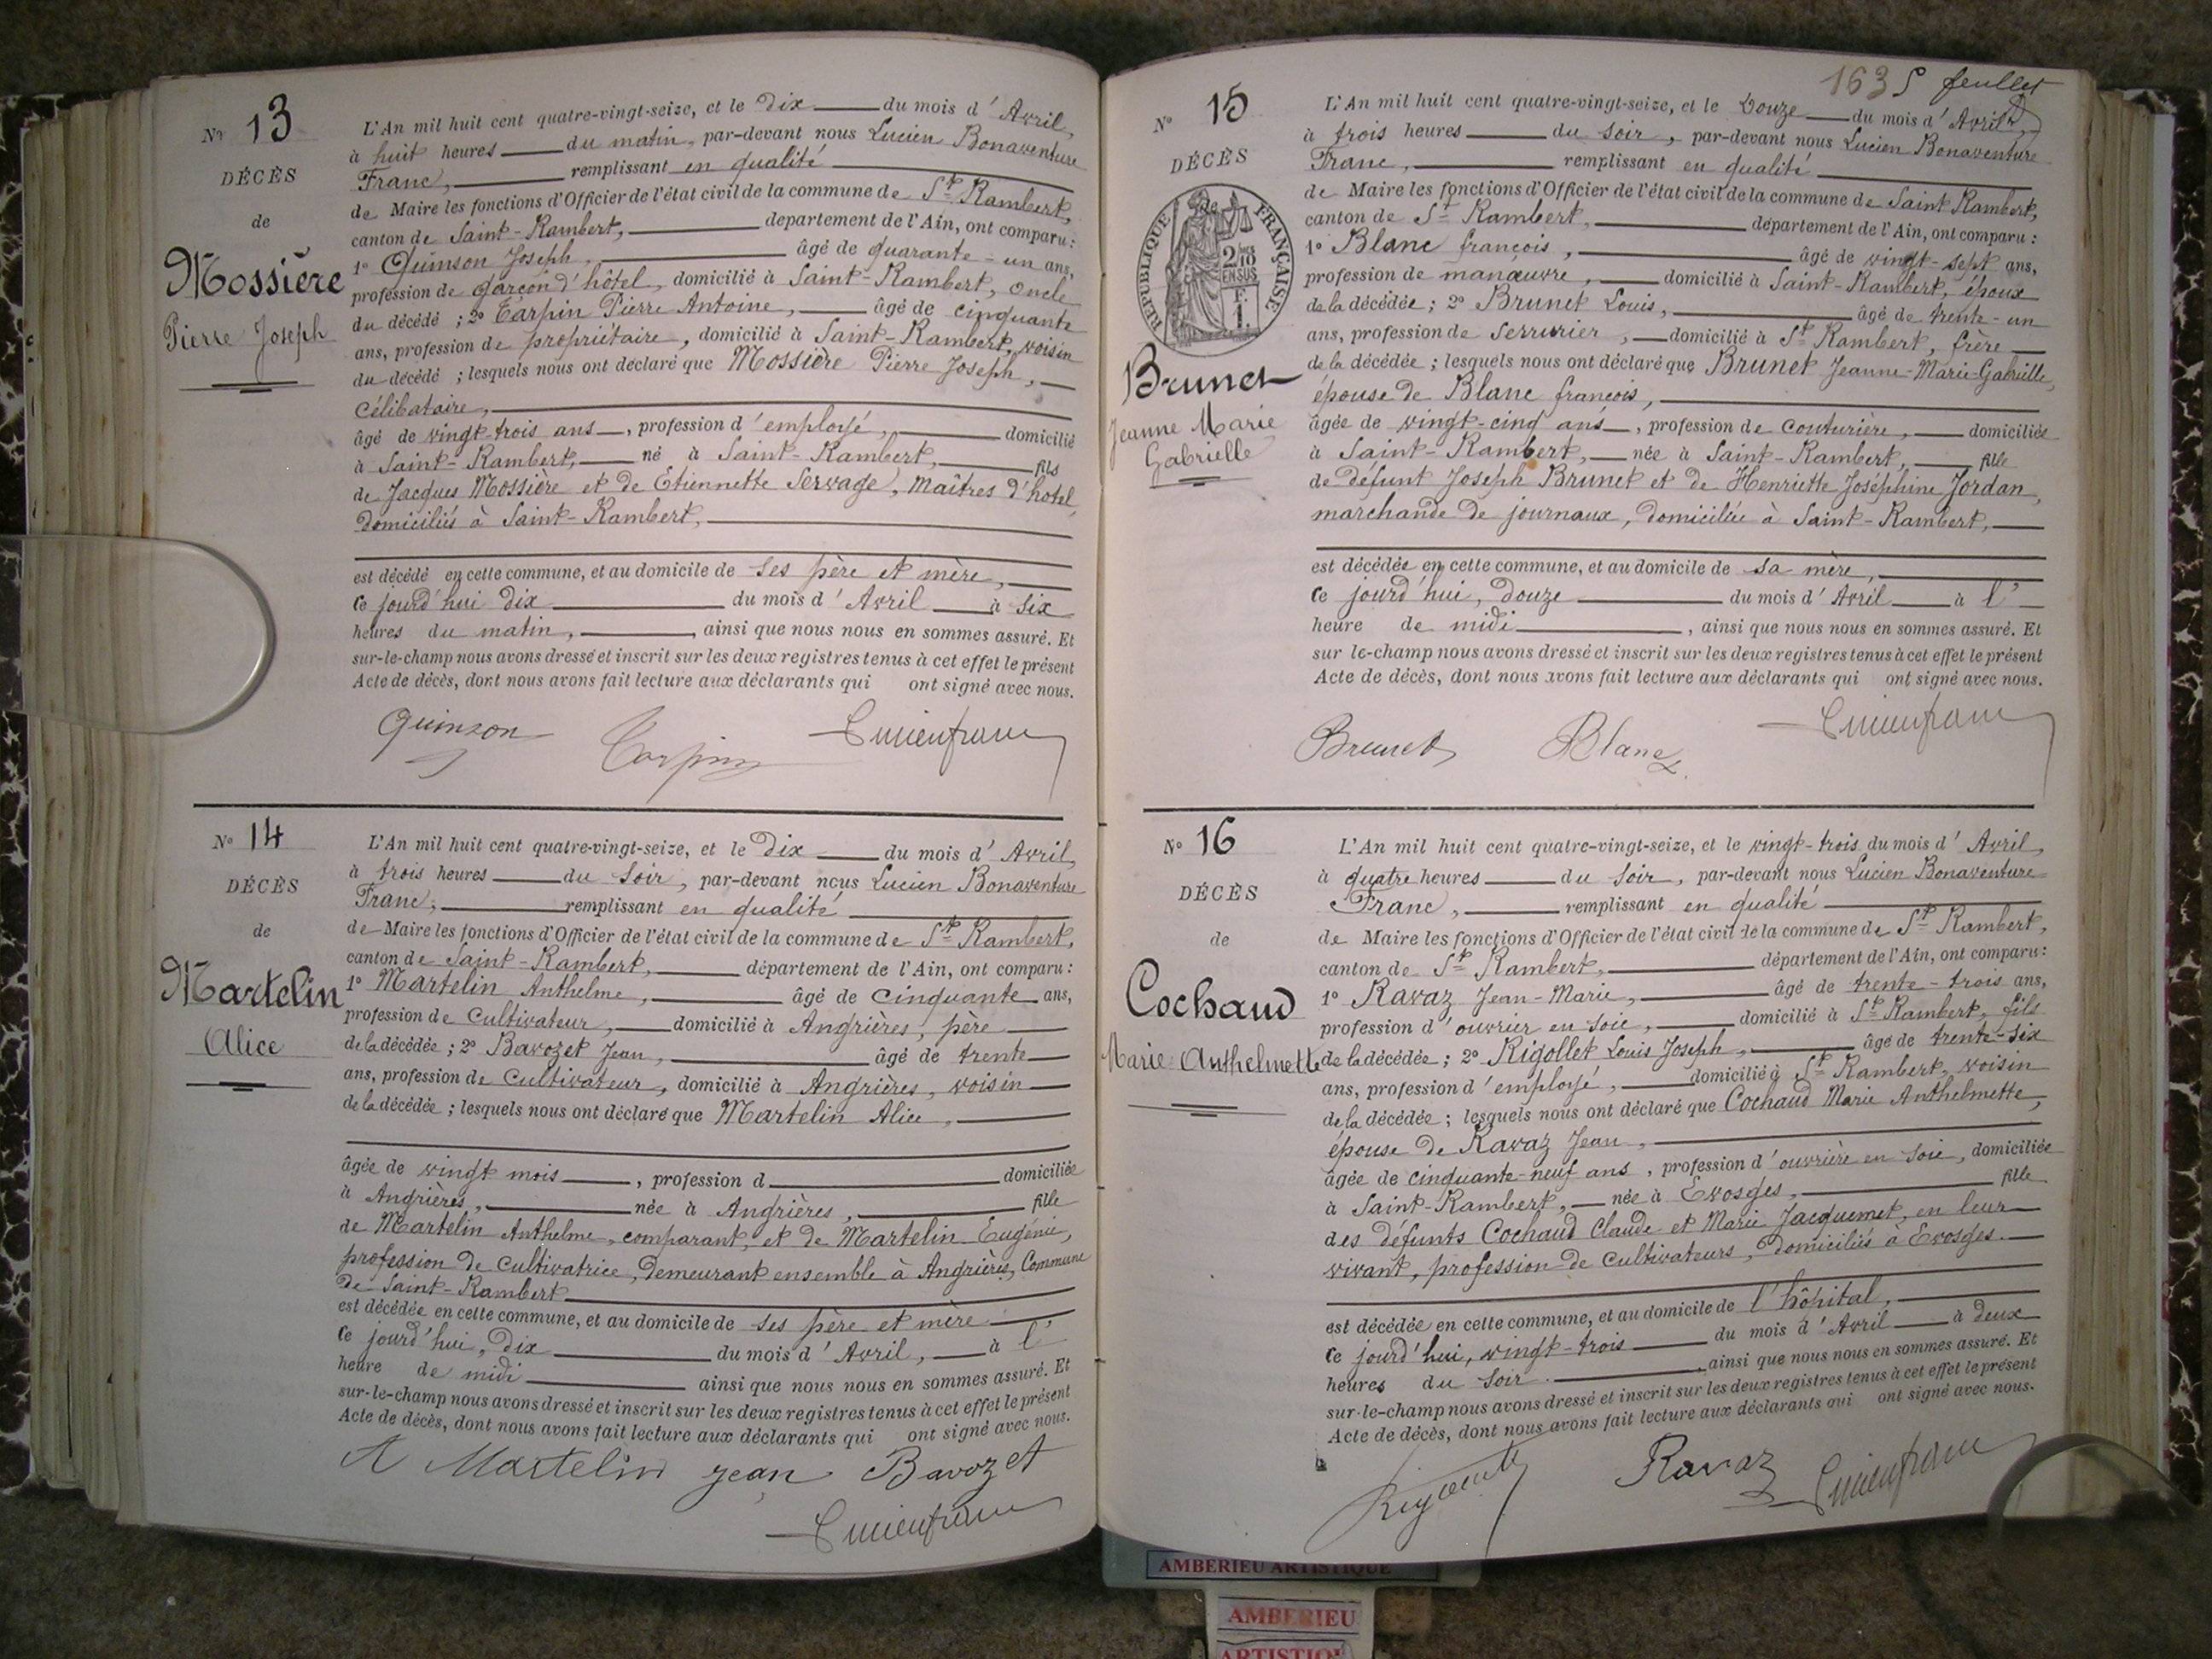 Nº 13
DÉCÈS
de
Mossière
Pierre Joseph
L'An mil huit cent quatre-vingt-seize, et le Dix du mois d'Avril,
à huit heures du matin, par-devant nous Lucien Bonaventure
Franc, remplissant en qualité
de Maire les fonctions d'Officier de l'état civil de la commune de St Rambert,
canton de Saint-Rambert, département de l'Ain, ont comparu :
1º Quinson Joseph, âgé de quarante-un ans,
profession de garçon d'hôtel, domicilié à Saint-Rambert, oncle
du décédé ; 2º Tarpin Pierre Antoine, âgé de cinquante
ans, profession de propriétaire, domicilié à Saint-Rambert, voisin
du décédé ; lesquels nous ont déclaré que Mossière Pierre Joseph,
célibataire,
âgé de vingt-trois ans, profession d'employé, domicilié
à Saint-Rambert, né à Saint-Rambert, fils
de Jacques Mossière et de Etiennette Servage, maîtres d'hotel,
domiciliés à Saint-Rambert,
est décédé en cette commune, et au domicile de ses père et mère,
ce jourd'hui dix du mois d'Avril à six
heures du matin, ainsi que nous nous en sommes assuré. Et
sur-le-champ nous avons dressé et inscrit sur les deux registres tenus à cet effet le présent
Acte de décès, dont nous avons fait lecture aux déclarants qui ont signé avec nous.
Quinson Tarpin Lucien franc
Nº 14
DÉCÈS
de
Martelin
Alice
L'An mil huit cent quatre-vingt-seize, et le Dix du mois d'Avril,
à trois heures du soir, par-devant nous Lucien Bonaventure
Franc, remplissant en qualité
de Maire les fonctions d'Officier de l'état civil de la commune de St Rambert,
canton de Saint-Rambert, département de l'Ain, ont comparu :
1º Martelin Anthelme, âgé de cinquante ans,
profession de cultivateur, domicilié à Angrières, père
de la décédée ; 2º Bavozet Jean, âgé de trente
ans, profession de cultivateur, domicilié à Angrières, voisin
de la décédée ; lesquels nous ont déclaré que Martelin Alice,
âgée de vingt mois, profession d domiciliée
à Angrières, née à Angrières, fille
de Martelin Anthelme, comparant, et de Martelin Eugénie,
profession de cultivatrice, demeurant ensemble à Angrières, Commune
de Saint-Rambert
est décédée en cette commune, et au domicile de ses père et mère
ce jourd'hui, dix du mois d'Avril, à l'
heure de midi ainsi que nous nous en sommes assuré. Et
sur-le-champ nous avons dressé et inscrit sur les deux registres tenus à cet effet le présent
Acte de décès, dont nous avons fait lecture aux déclarants qui ont signé avec nous.
A Martelin jean Bavozet
Lucien franc
163 5 feuillet
Nº 15
DÉCÈS
de
RÉPUBLIQUE FRANÇAISE
2/10
EN SUS
Brunet
Jeanne Marie
Gabrielle
L'An mil huit cent quatre-vingt-seize, et le Douze du mois d'Avril
à trois heures du soir, par-devant nous Lucien Bonaventure
Franc, remplissant en qualité
de Maire les fonctions d'Officier de l'état civil de la commune de Saint Rambert,
canton de St Rambert, département de l'Ain, ont comparu :
1º Blanc françois, âgé de vingt-sept ans,
profession de manœuvre, domicilié à Saint-Rambert, époux
de la décédée ; 2º Brunet Louis, âgé de trente-un
ans, profession de serrurier, domicilié à St Rambert, frère
de la décédée ; lesquels nous ont déclaré que Brunet Jeanne-Marie-Gabrielle,
épouse de Blanc françois,
âgée de vingt-cinq ans, profession de couturière, domiciliée
à Saint-Rambert, née à Saint-Rambert, fille
de défunt Joseph Brunet et de Henriette Joséphine Jordan,
marchande de journaux, domiciliée à Saint-Rambert,
est décédée en cette commune, et au domicile de sa mère,
ce jourd'hui, douze du mois d'Avril à l'
heure de midi, ainsi que nous nous en sommes assuré. Et
sur le-champ nous avons dressé et inscrit sur les deux registres tenus à cet effet le présent
Acte de décès, dont nous avons fait lecture aux déclarants qui ont signé avec nous.
Brunet Blanc Lucien franc
Nº 16
DÉCÈS
de
Cochaud
Marie Anthelmette
L'An mil huit cent quatre-vingt-seize, et le vingt-trois du mois d'Avril,
à quatre heures du soir, par-devant nous Lucien Bonaventure
Franc, remplissant en qualité
de Maire les fonctions d'Officier de l'état civil de la commune de St Rambert,
canton de St Rambert, département de l'Ain, ont comparu :
1º Ravaz Jean-Marie, âgé de trente-trois ans,
profession d'ouvrier en soie, domicilié à St Rambert, fils
de la décédée ; 2º Rigollet Louis Joseph, âgé de trente-six
ans, profession d'employé, domicilié à St Rambert, voisin
de la décédée ; lesquels nous ont déclaré que Cochaud Marie Anthelmette,
épouse de Ravaz Jean,
âgée de cinquante-neuf ans, profession d'ouvrière en soie, domiciliée
à Saint-Rambert, née à Evosges, fille
des défunts Cochaud Claude et Marie Jacquemet, en leur
vivant, profession de cultivateurs, domiciliés à Evosges.
est décédée en cette commune, et au domicile de l'hôpital,
ce jourd'hui, vingt-trois du mois d'Avril à deux
heures du soir. ainsi que nous nous en sommes assuré. Et
sur-le-champ nous avons dressé et inscrit sur les deux registres tenus à cet effet le présent
Acte de décès, dont nous avons fait lecture aux déclarants qui ont signé avec nous.
Ravaz Lucien franc
AMBERIEU ARTISTIQUE
AMBERIEU